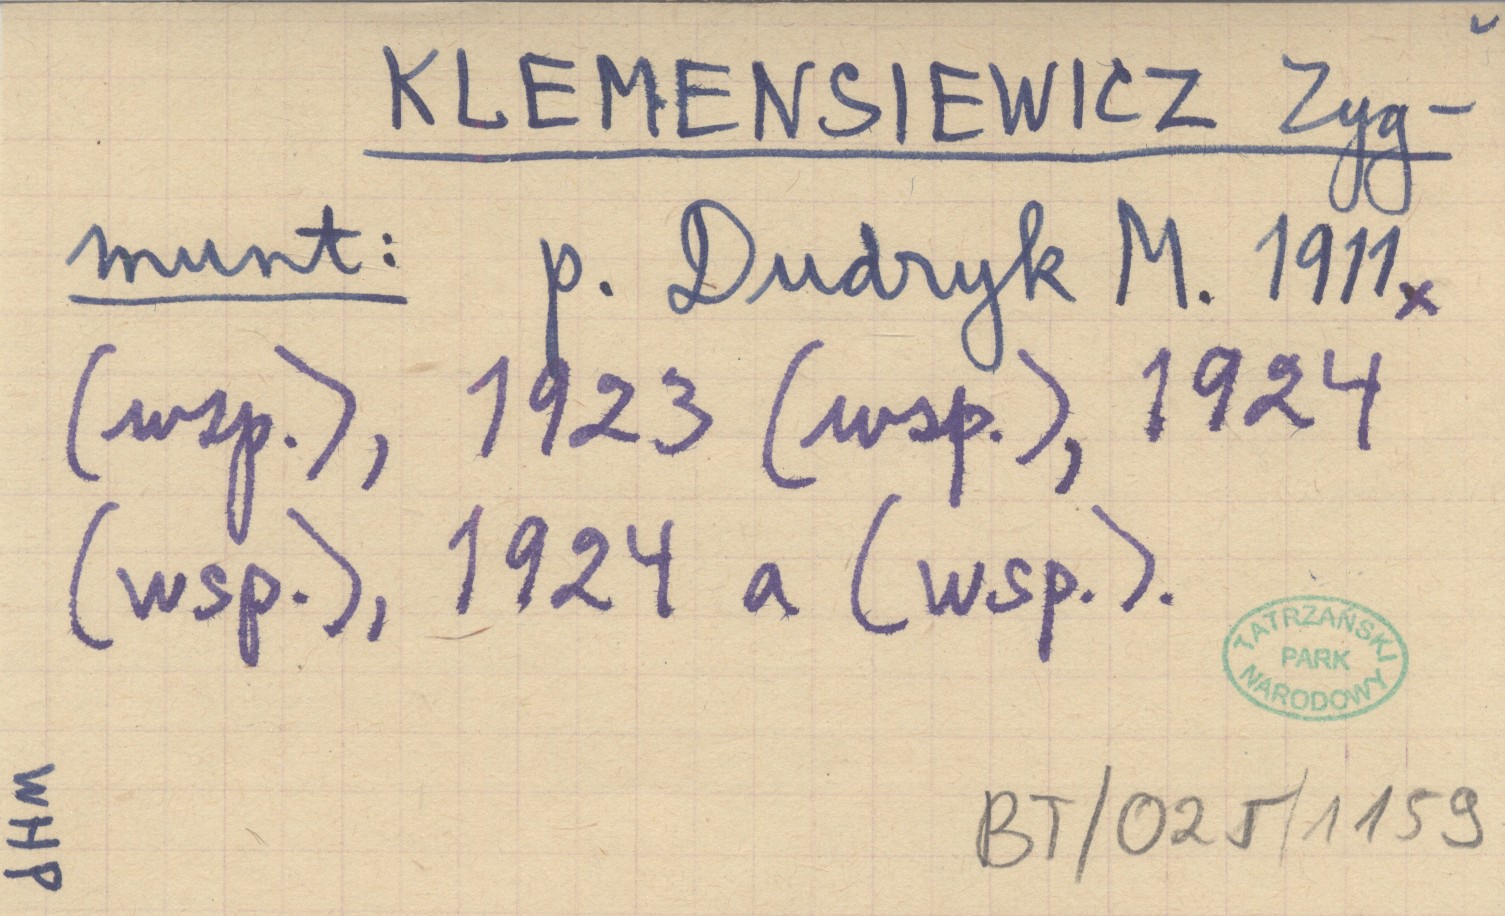 KLEMENSIEWICZ Zyg-
munt: p. Dudryk M. 1911 x
(wsp.), 1923 (wsp.), 1924
(wsp.), 1924 a (wsp.).
TATRZAŃSKI
PARK
NARODOWY
BT/025/1159
WHP